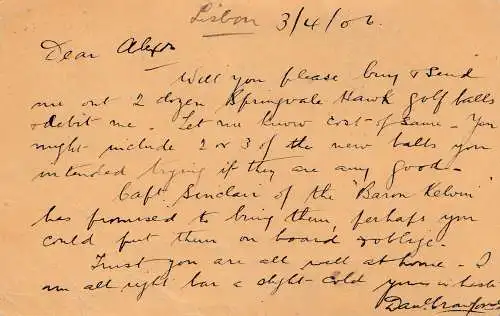 Lisbon 3/4/06.
Dear Alex
Will you please buy & send
me out 2 dozen Springvale Hawk golf balls
& debit me. Let me know cost of same - You
might include 2 or 3 of the new balls you
intended trying if they are any good -
Capt. Sinclair of the "Baron Kelvin"
has promised to bring them, perhaps you
could put them on board & oblige.
Trust you are all well at home - I
am all right bar a slight cold yours in haste
Danl Crawford